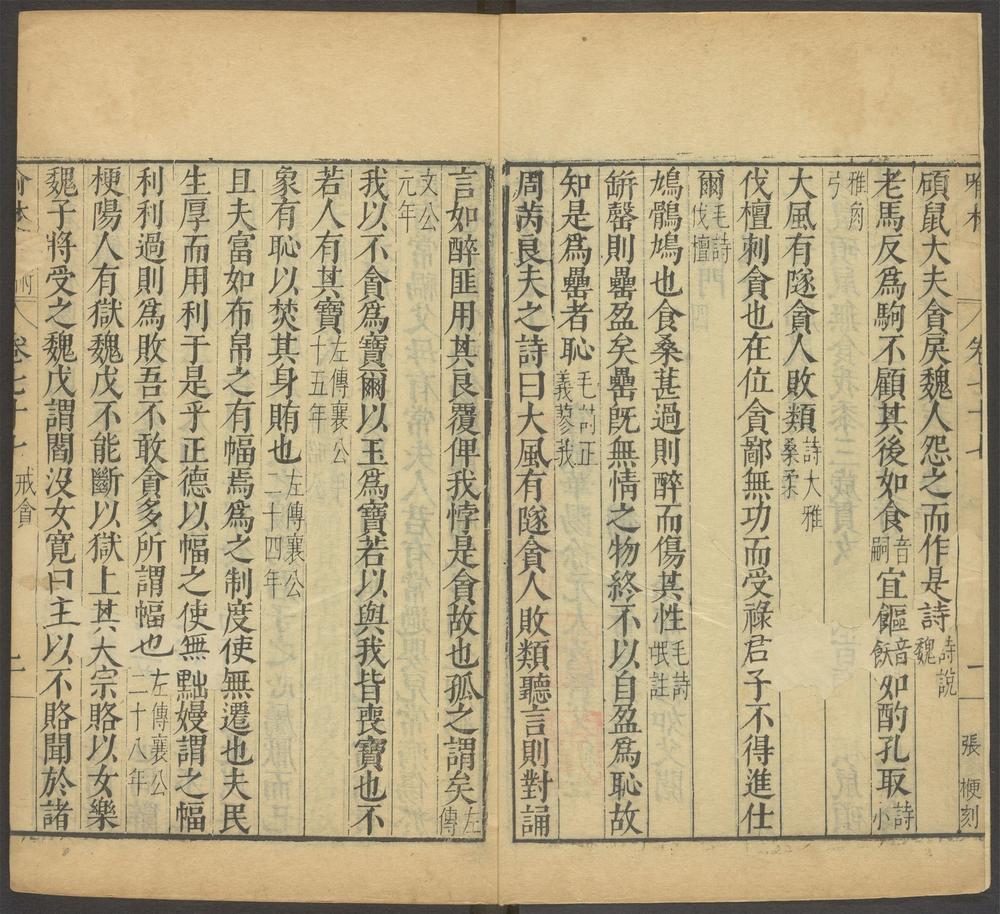 碩鼠大夫貪戾魏人怨之而作是詩詩說魏
老馬反爲駒不顧其後如食音嗣宜饇音飫如酌孔取詩小
雅角弓
大風有隧貪人敗類詩大雅桑柔
伐檀刺貪也在位貪鄙無功而受祿君子不得進仕
爾毛詩伐檀
鳩鶻鳩也食桑葚過則醉而傷其性毛詩氓註
缾罄則罍盈矣罍旣無情之物終不以自盈爲恥故
知是爲罍者恥毛詩正義蓼莪
周芮良夫之詩曰大風有隧貪人敗類聽言則對誦
張梗刻
言如醉匪用其良覆俾我悖是貪故也孤之謂矣左傳
文公元年
我以不貪爲寶爾以玉爲寶若以與我皆喪寶也不
若人有其寶左傳襄公十五年
象有恥以焚其身賄也左傳襄公二十四年
且夫富如布帛之有幅焉爲之制度使無遷也夫民
生厚而用利于是乎正德以幅之使無黜嫚謂之幅
利利過則爲敗吾不敢貪多所謂幅也左傳襄公二十八年
梗陽人有獄魏戊不能斷以獄上其大宗賂以女樂
魏子將受之魏戊謂閻沒女寬曰主以不賂聞於諸
卷七十七 戒貪